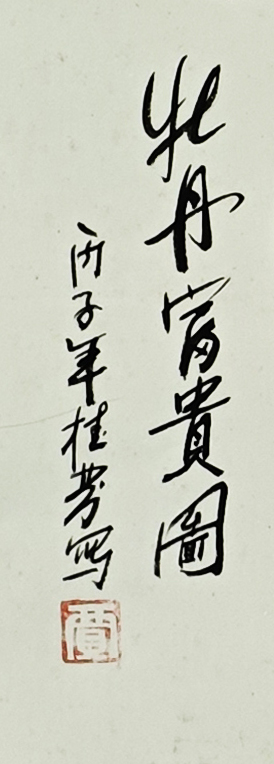 牡丹富貴圖
丙子年桂芳写